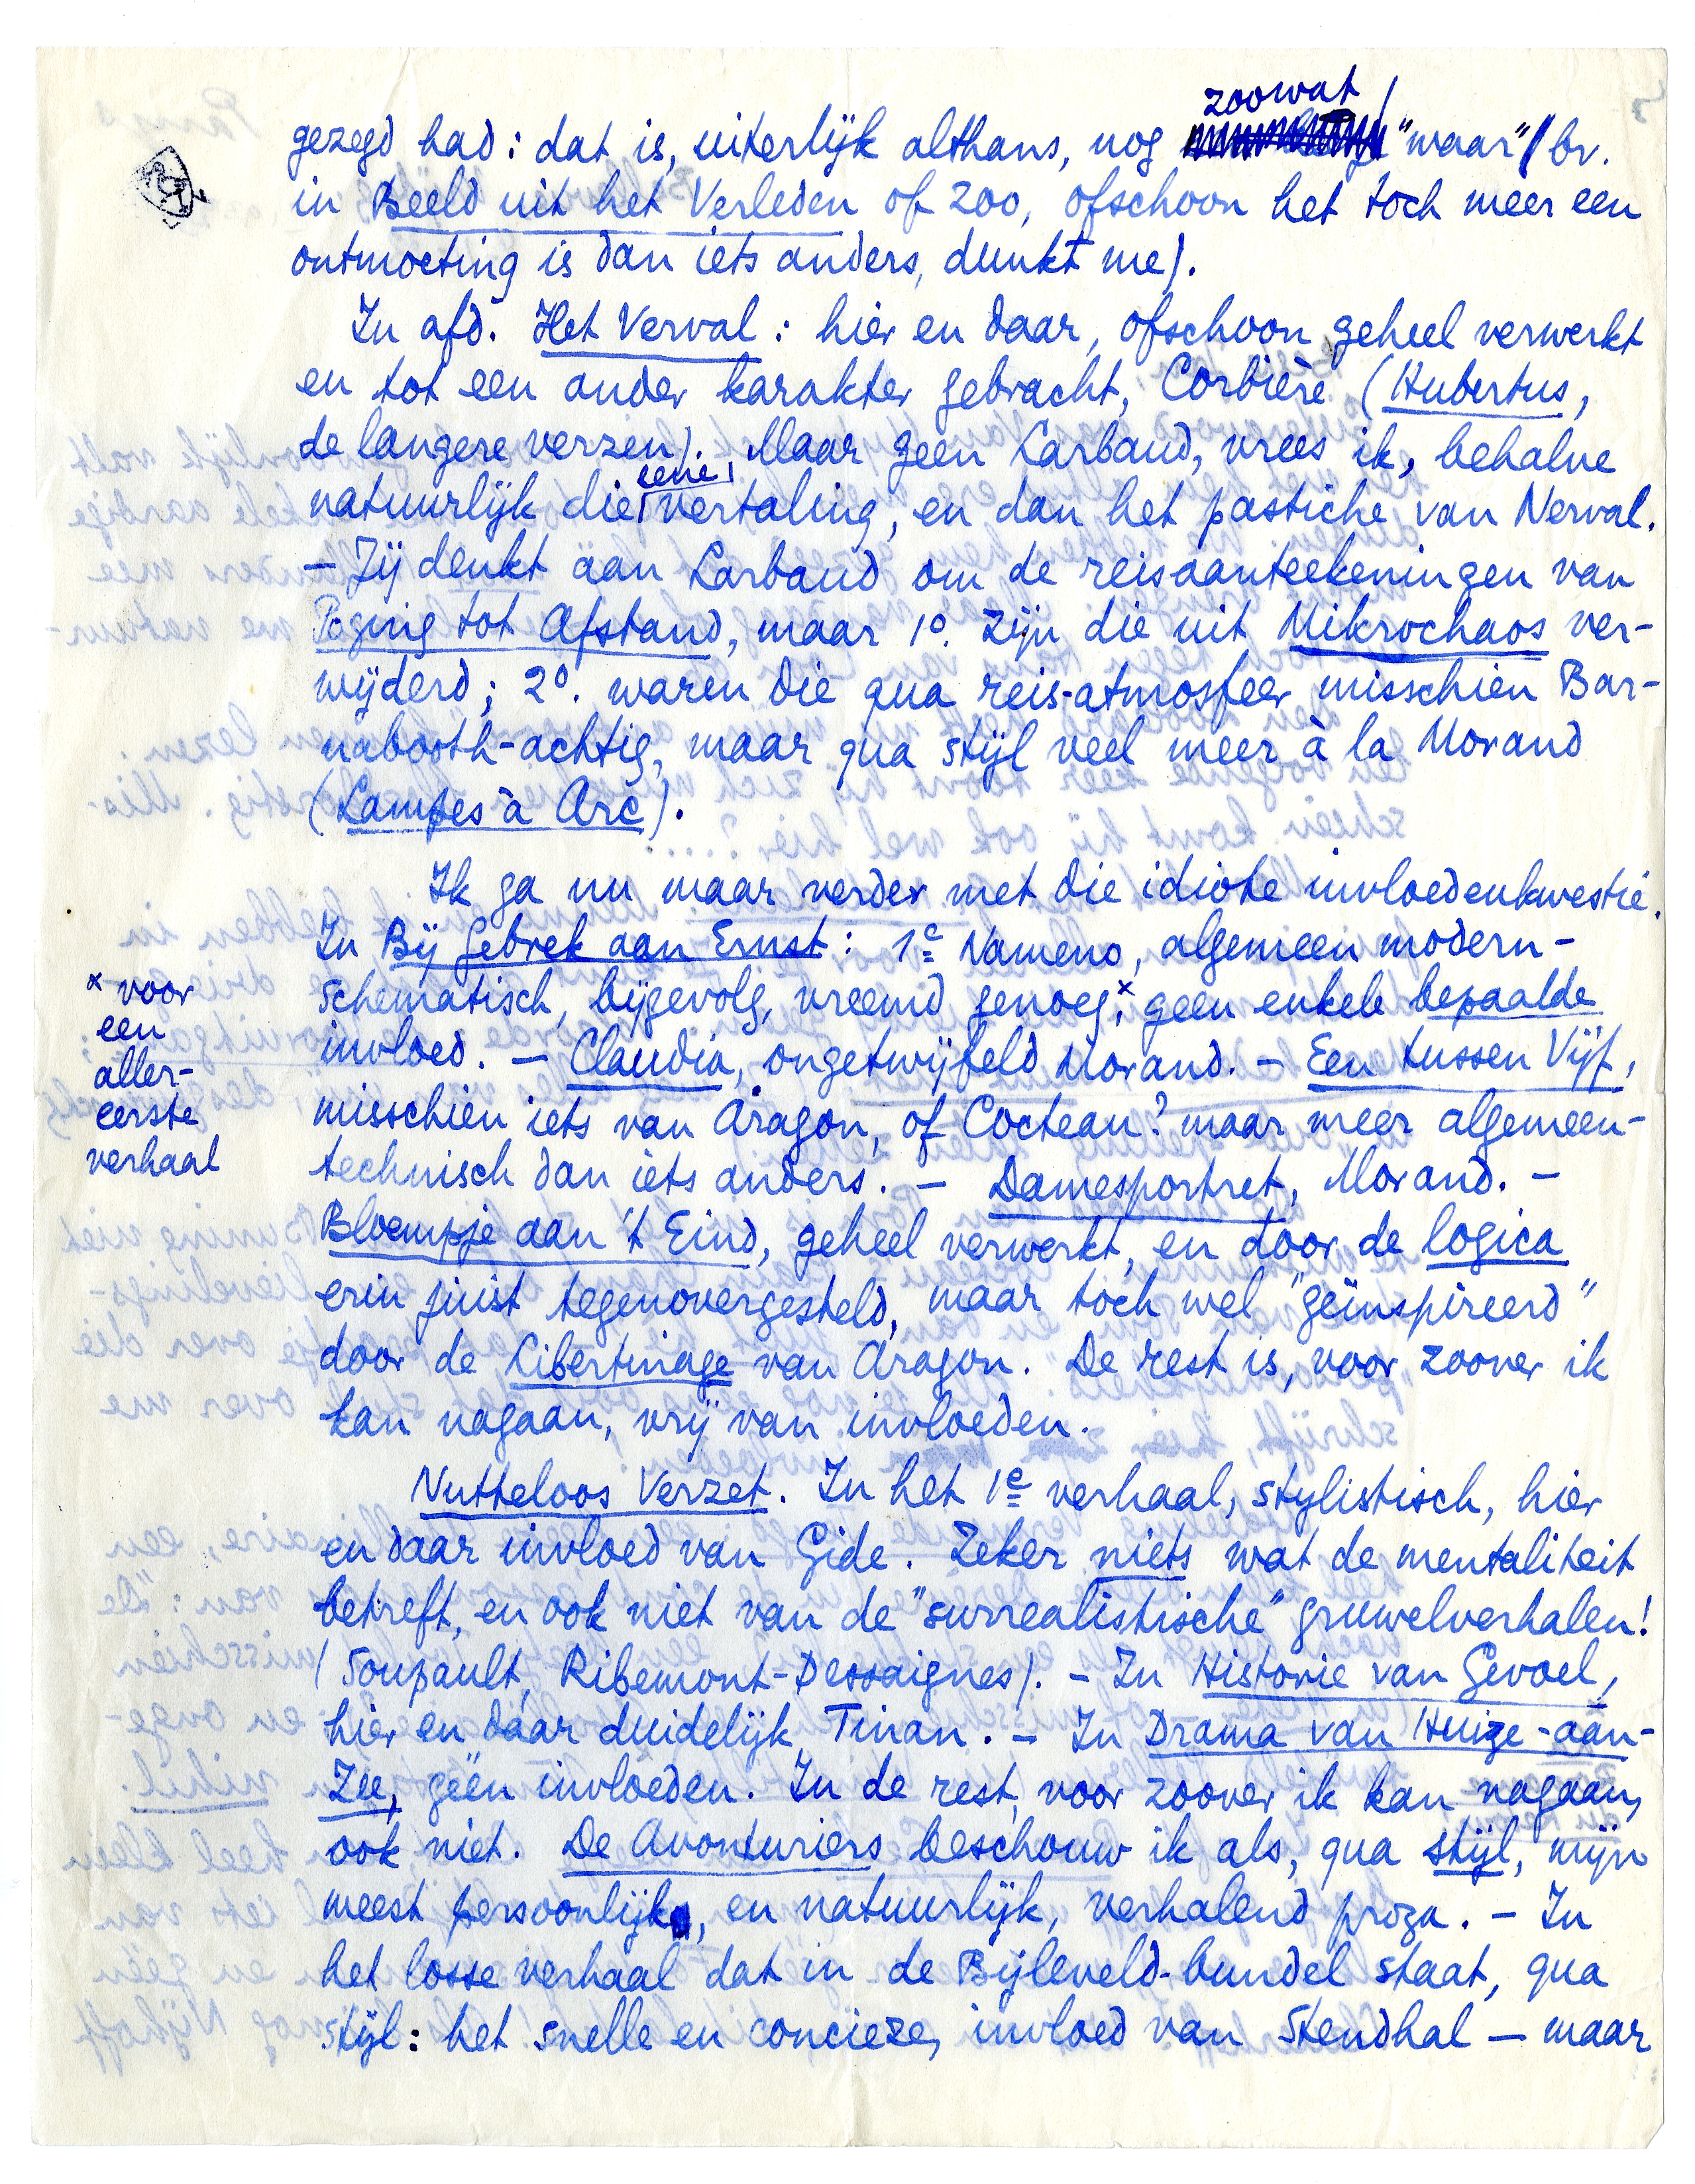 zoowat
gezegd had: dat is, uiterlijk althans, nog "waar" bv.
in Beeld uit het Verleden of zoo, ofschoon het toch meer een
ontmoeting is dan iets anders, dunkt me).
In afd. Het Verval: hier en daar, ofschoon geheel verwerkt
en tot een ander karakter gebracht, Corbière (Hubertus,
de langere verzen). Maar geen Larbaud, vrees ik, behalve
eene
natuurlijk die vertaling, en dan het pastiche van Nerval.
— Jij denkt aan Larbaud om de reisaanteekeningen van
Poging tot Afstand, maar 1º. zijn die uit Mikrochaos ver-
wijderd; 2º. waren die qua reis-atmosfeer misschien Bar-
nabooth-achtig, maar qua stijl veel meer à la Morand
(Lampes à Arc).
Ik ga nu maar verder met die idiote invloedenkwestie.
In Bij Gebrek aan Ernst: 1e Nameno, algemeen modern-
schematisch, bijgevolg, vreemd genoeg,x geen enkele bepaalde
invloed. — Claudia, ongetwijfeld Morand. — Een tussen Vijf,
misschien iets van Aragon, of Cocteau? maar meer algemeen-
technisch dan iets anders. — Damesportret, Morand. —
Bloempje aan 't Eind, geheel verwerkt, en door de logica
erin juist tegenovergesteld, maar toch wel "geïnspireerd"
door de Libertinage van Aragon. De rest is, voor zoover ik
kan nagaan, vrij van invloeden.
x voor
een
aller-
eerste
verhaal
Nutteloos Verzet. In het 1e verhaal, stylistisch, hier
en daar invloed van Gide. Zeker niets wat de mentaliteit
betreft, en ook niet van de "surrealistische" gruwelverhalen!
(Soupault, Ribemont-Dessaignes). — In Historie van Gevoel,
hier en daar duidelijk Tinan. — In Drama van Huize-aan-
Zee, géén invloeden. In de rest, voor zoover ik kan nagaan,
ook niet. De Avonturiers beschouw ik als, qua stijl, mijn
meest persoonlijk, en natuurlijk, verhalend proza. — In
het losse verhaal dat in de Bijleveld-bundel staat, qua
stijl: het snelle en concieze, invloed van Stendhal — maar